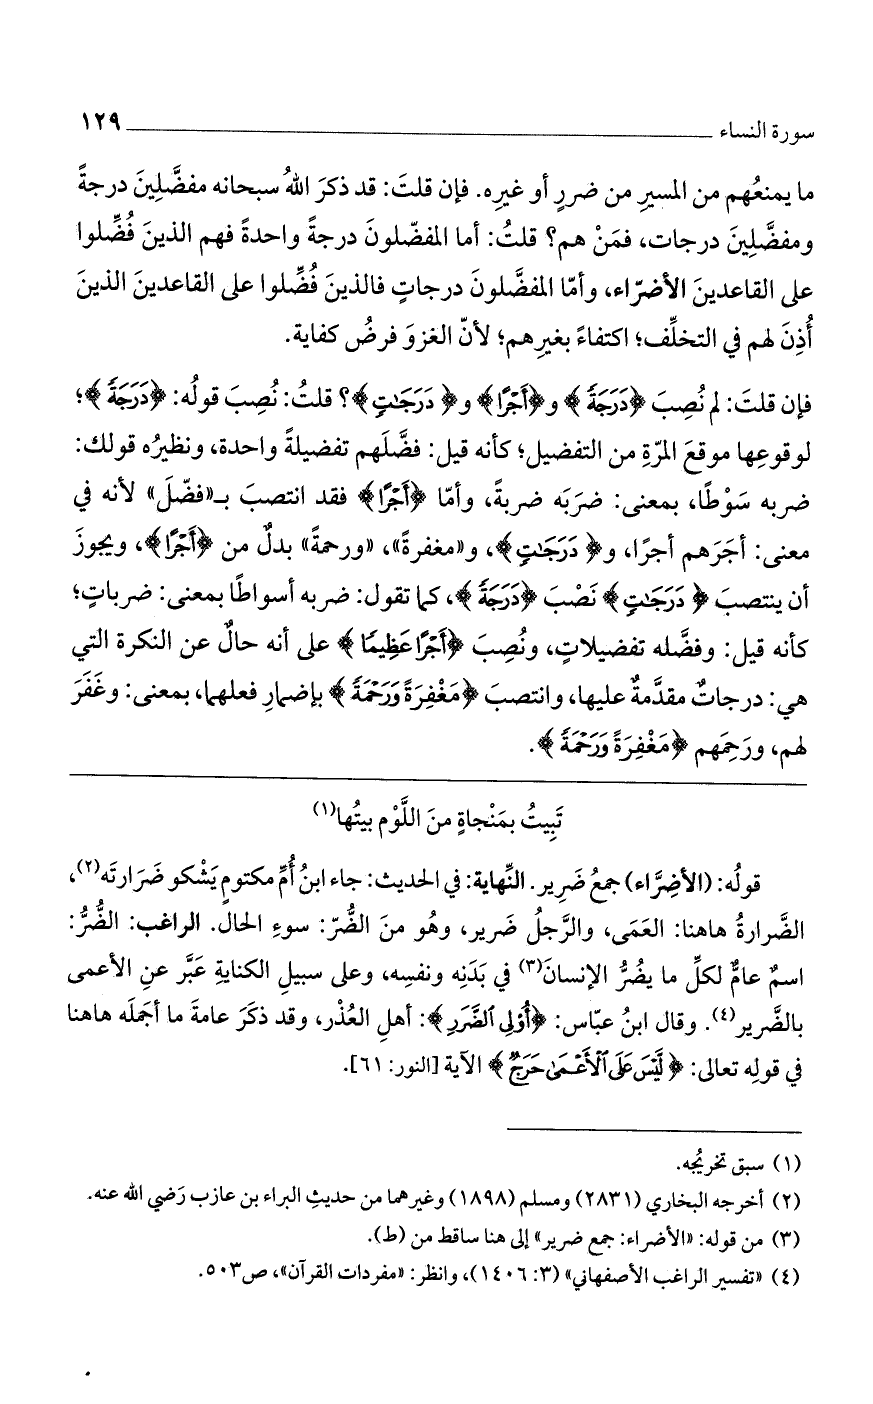 سورة النساء ١٢٩
ما يمنعُهم من المسيرِ من ضررٍ أو غيرِه. فإن قلتَ: قد ذكرَ اللهُ سبحانه مفضَّلِينَ درجةً
ومفضَّلِينَ درجات، فمَنْ هم؟ قلتُ: أما المفضّلونَ درجةً واحدةً فهم الذينَ فُضِّلوا
على القاعدينَ الأضرّاء، وأمّا المفضَّلونَ درجاتٍ فالذينَ فُضِّلوا على القاعدينَ الذينَ
أُذِنَ لهم في التخلّف؛ اكتفاءً بغيرِهم؛ لأنّ الغزوَ فرضُ كفاية.
فإن قلتَ: لم نُصِبَ ﴿دَرَجَةً﴾ و﴿أَجْرًا﴾ و﴿دَرَجَٰتٍ﴾؟ قلتُ: نُصِبَ قولُه: ﴿دَرَجَةً﴾؛
لوقوعِها موقعَ المرّةِ من التفضيل؛ كأنه قيل: فضَّلَهم تفضيلةً واحدة، ونظيرُه قولك:
ضربه سَوْطًا، بمعنى: ضرَبَه ضربةً، وأمّا ﴿أَجْرًا﴾ فقد انتصبَ بـ«فضّلَ» لأنه في
معنى: أجَرَهم أجرًا، و﴿دَرَجَٰتٍ﴾، و«مغفرةً»، «ورحمةً» بدلٌ من ﴿أَجْرًا﴾، ويجوزَ
أن ينتصبَ ﴿دَرَجَٰتٍ﴾ نَصْبَ ﴿دَرَجَةً﴾، كما تقول: ضربه أسواطًا بمعنى: ضرباتٍ؛
كأنه قيل: وفضَّله تفضيلاتٍ، ونُصِبَ ﴿أَجْرًا عَظِيمًا﴾ على أنه حالٌ عن النكرة التي
هي: درجاتٌ مقدَّمةٌ عليها، وانتصبَ ﴿مَغْفِرَةً وَرَحْمَةً﴾ بإضمارِ فعلهما، بمعنى: وغَفَرَ
لهم، ورَحِمَهم ﴿مَغْفِرَةً وَرَحْمَةً﴾.
تَبِيتُ بمَنْجاةٍ منَ اللَّوْمِ بيتُها(١)
قولُه: (الأضِرَّاء) جمعُ ضَرِير. النِّهاية: في الحديث: جاء ابنُ أُمِّ مكتومٍ يَشْكو ضَرَارتَه(٢)،
الضَّرارةُ هاهنا: العَمَى، والرَّجلُ ضَرير، وهُو منَ الضُّرّ: سوءِ الحال. الراغب: الضُّرُّ:
اسم عامٌّ لكلِّ ما يضُرُّ الإنسانَ(٣) في بَدَنِه ونفسِه، وعلى سبيلِ الكنايةِ عَبَّر عنِ الأعمى
بالضَّرير(٤). وقال ابنُ عبّاس: ﴿أُوْلِى ٱلضَّرَرِ﴾: أهلِ العُذْر، وقد ذكَرَ عامةَ ما أجمَلَه هاهنا
في قولِه تعالى: ﴿لَّيْسَ عَلَى ٱلْأَعْمَىٰ حَرَجٌ﴾ الآية [النور: ٦١].
(١) سبق تخريجُه.
(٢) أخرجه البخاري (٢٨٣١) ومسلم (١٨٩٨) وغيرهما من حديثِ البراء بن عازب رَضي الله عنه.
(٣) من قوله: «الأضراء: جمع ضرير» إلى هنا ساقط من (ط).
(٤) «تفسير الراغب الأصفهاني» (٣: ١٤٠٦)، وانظر: «مفردات القرآن»، ص٥٠٣.